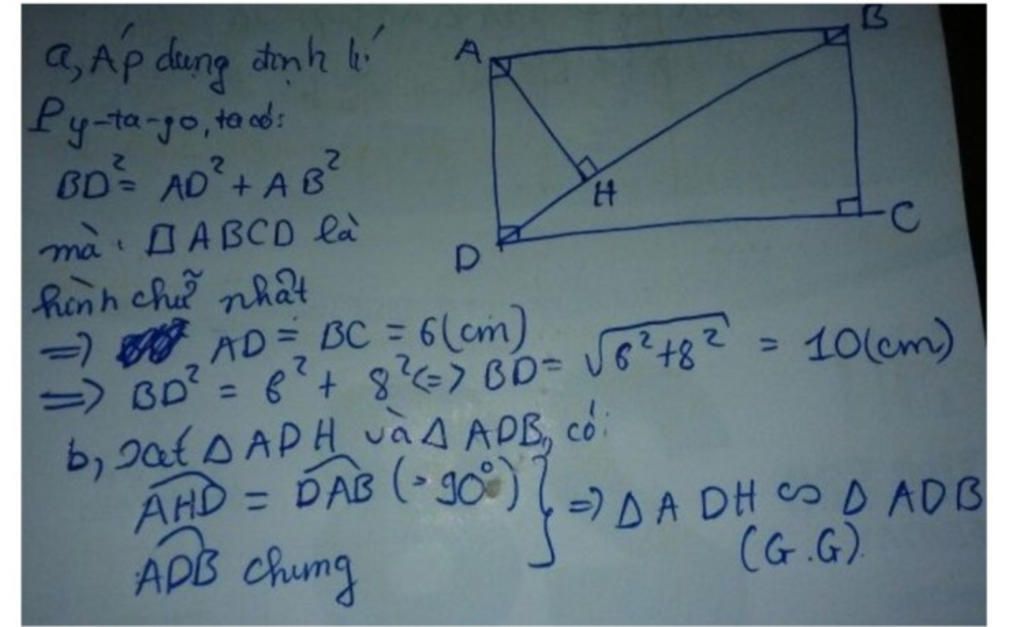 a, Áp dụng định lí
Py-ta-go, ta có:
BD² = AD² + AB²
mà: □ABCD là
hình chữ nhật
=> AD = BC = 6(cm)
=> BD² = 6² + 8² <=> BD = √6²+8² = 10(cm)
b, xét Δ ADH và Δ ADB, có:
AHD = DAB (=90°) } => Δ ADH ∽ Δ ADB
ADB chung
(G.G).
A
B
H
C
D